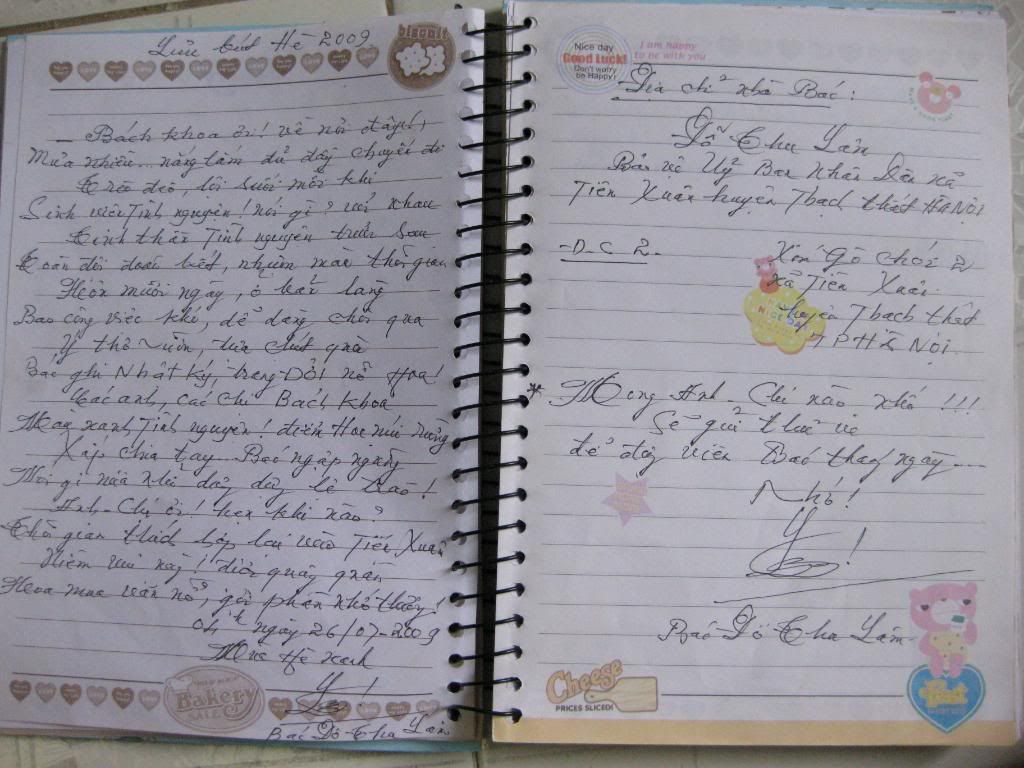 Lưu bút Hè 2009
biscuit
_ Bách khoa ơi! về nơi đây!
Mưa nhiều... nắng lắm đủ đầy chuyến đi
Trèo đèo, lội suối mỗi khi
Sinh viên Tình nguyện! nói gì? với nhau
Tinh thần Tình nguyện trước sau
Toàn đội đoàn kết, nhuộm màu thời gian
Hơn mười ngày, ở bản làng
Bao công việc khó, dễ dàng chói qua
Ý thơ vườn, lựa chút quà
Bác ghi Nhật ký, trang Đời nở Hoa!
Các anh, các chị Bách Khoa
Màu xanh Tình nguyện! điểm Hoa núi rừng
Xắp chia tay Bác ngập ngừng
Nói gì nữa khi dưng dưng lệ trào!
Anh-Chị ơi! hẹn khi nào?
Thời gian thích hợp lại vào Tiến Xuân
Niềm vui này! được quây quần
Hoa mua vẫn nở, gội phần nhớ thương!
Ngày 26/07-2009
Mùa Hè xanh
Bác Đỗ Thu Yên
Bakery
SALE
Nice day
Good Luck!
Don't worry
be Happy!
I am happy
to be with you
Địa chỉ nhà Bác:
Đỗ Thu Yên
Bảo vệ Uỷ Ban Nhân Dân xã
Tiến Xuân huyện Thạch thất Hà Nội
-Đ-C 2-
Xóm Gò Chói 2
xã Tiến Xuân
huyện Thạch thất
TP Hà Nội
* Mong Anh - Chị nào nhớ!!!
Sẽ gửi thư về
để động viên Bác tháng ngày....
Nhớ!
Bác Đỗ Thu Yên
Cheese
PRICES SLICED!
Best